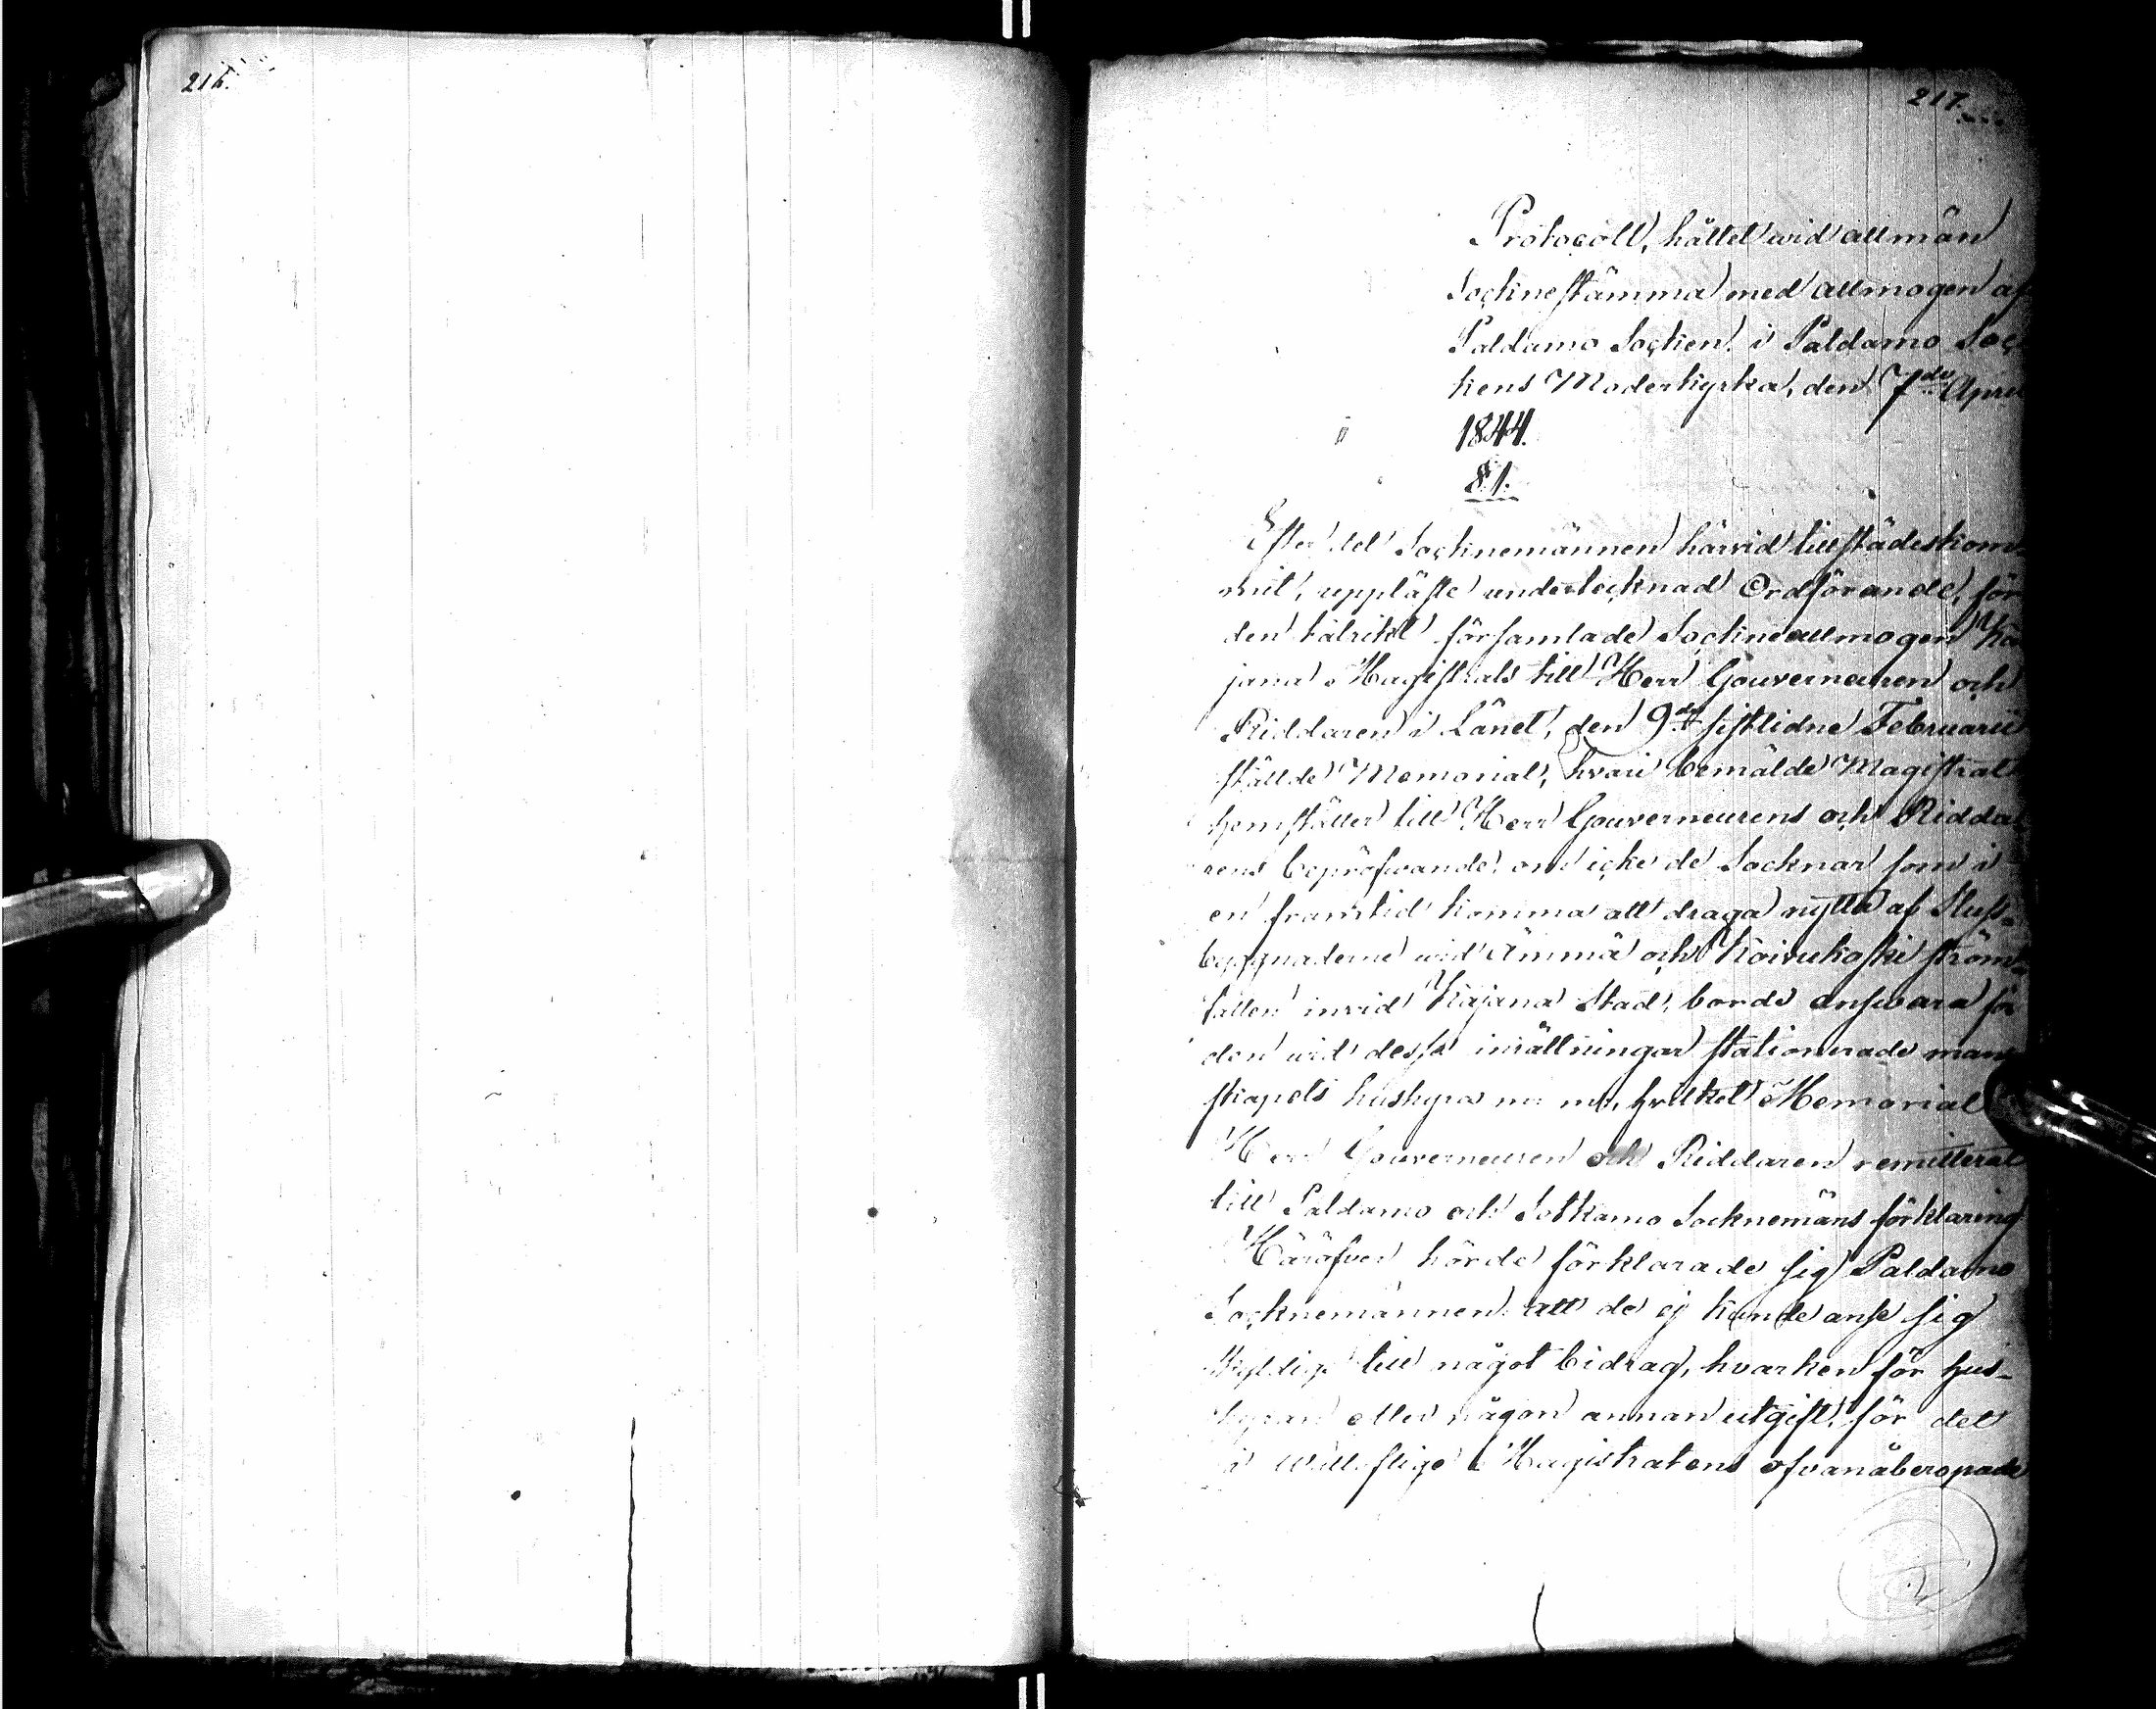 216.
217.
Protocoll, hållet wid allmän
Socknestämma med allmogen af
Paldamo Socken i Paldamo Soc
kens Moderkyrka, den 7de April
1844.
§ 1.
Efter det Socknemännen härvid tillstädeskom-
mit, uppläste undertecknad Ordförande, för
den talrikt församlade Sockneallmogen Ka
jana Magistrats till Herr Gouverneuren och
Riddaren i Länet, den 9de sistlidne Februarii
ställde Memorial, hvari bemälde Magistrat
hemställer till Herr Gouverneurens och Ridda
rens bepröfwande, om icke de Socknar som i
en framtid komma att draga nytta af Sluss-
byggnaderne wid Ämmä och Koivukoski ström-
fallen invid Kajana Stad, borde answara för
den wid dessa inrättningar stationerade man-
skapets hushyra m m, hvilket Memorial
Herr Gouverneuren och Riddaren remitterat
till Paldamo och Sotkamo Socknemäns förklaring
Häröfver hörde förklarade sig Paldamo
Socknemännen att de ej kunde anse sig
skyldige till något bidrag, hvarken för hus-
hyran eller någon annan utgift, för det
i Wällofliga Magistratens ofvanåberopade